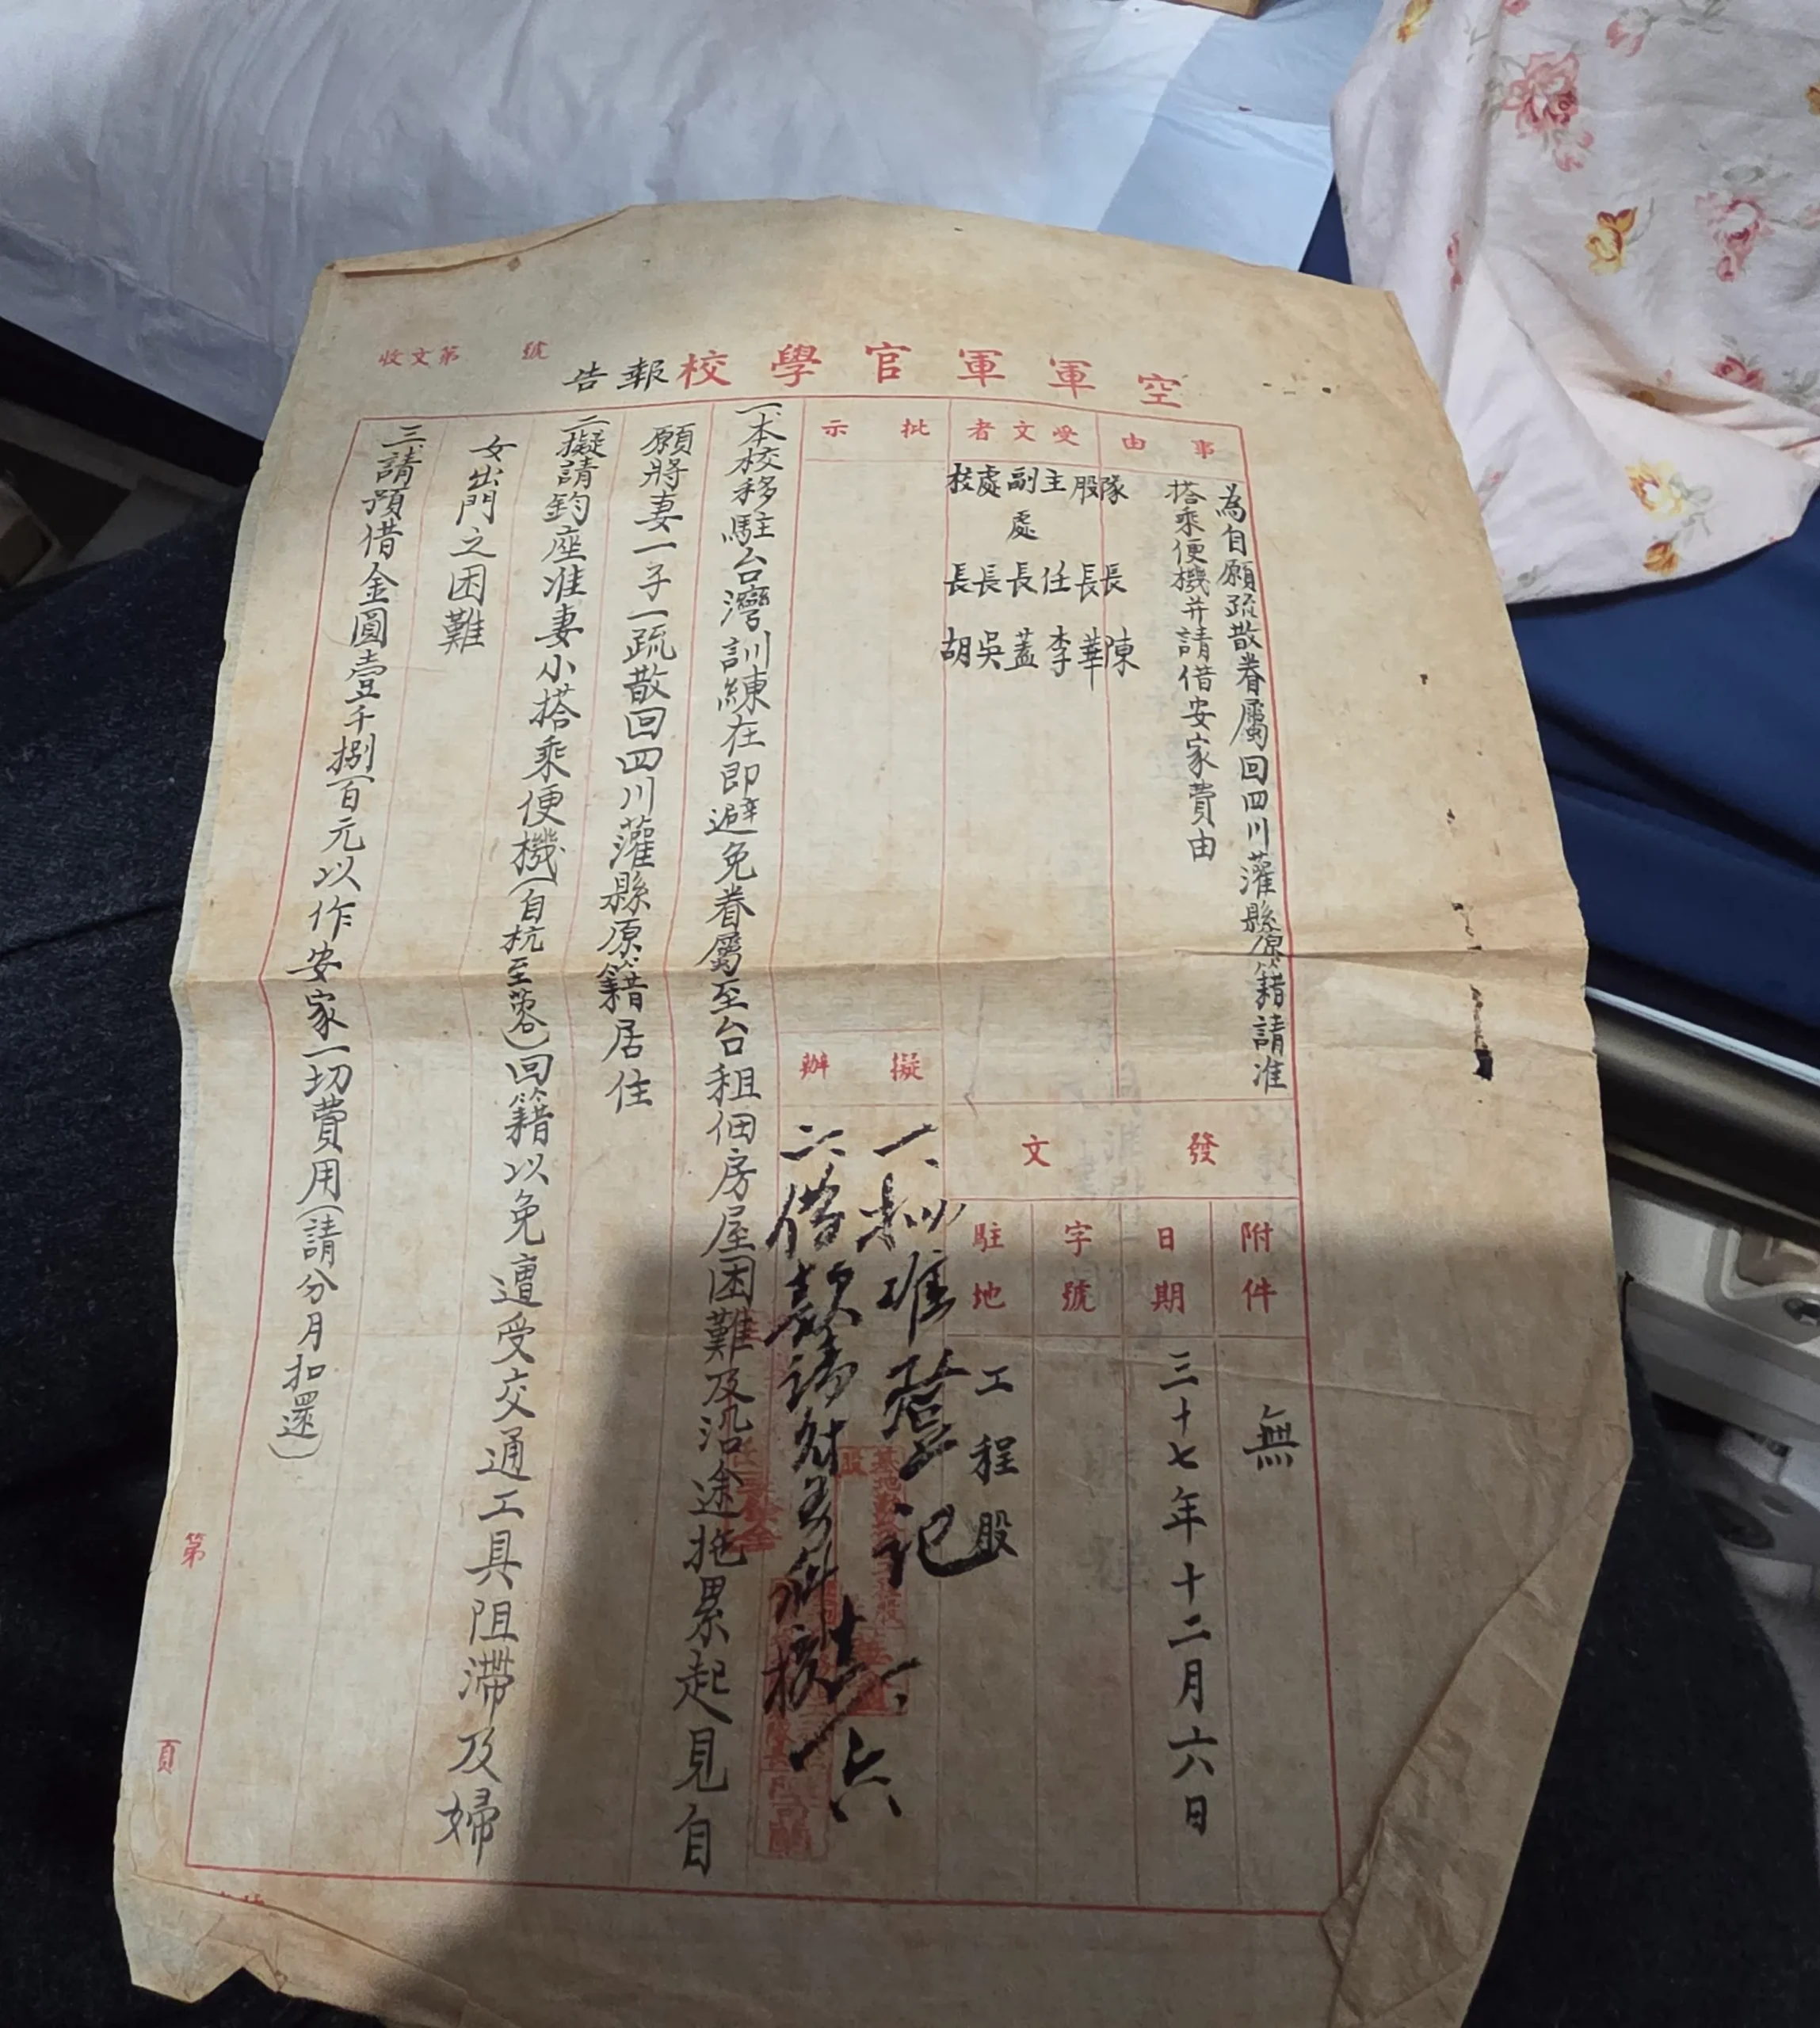 空軍軍官學校報告
收文第　號
事由
為自願疏散眷屬回四川灌縣原籍請准
搭乘便機并請借安家費由
受文者
隊長陳
股長華
主任李
副處長蓋
處長吳
校長胡
批示
發文
附件
無
日期
三十七年十二月六日
字號
駐地
工程股
擬辦
一、擬准登記
二、借款請財務科核
六
一、本校移駐台灣訓練在即避免眷屬至台租佃房屋困難及沿途拖累起見自
願將妻一子一疏散回四川灌縣原籍居住
二、擬請鈞座准妻小搭乘便機(自杭至蓉)回籍以免遭受交通工具阻滯及婦
女出門之困難
三、請預借金圓壹千捌百元以作安家一切費用(請分月扣還)
第
頁